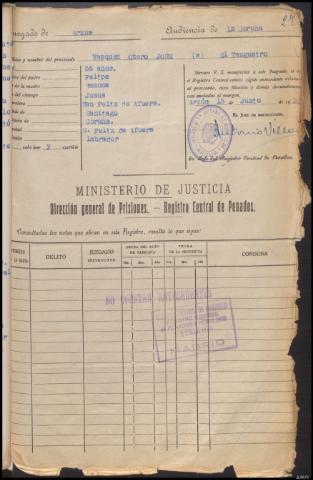 27
Juzgado de Arzua Audiencia de La Coruña
y nombre del procesado Vazquez Otero José (a) El Tangueiro
56 años.
del padre Felipe
de la madre Ramona
del cónyuge Juana
San Felix de Afuera.
Santiago
Coruña.
S. Felix de Afuera
Labrador
sabe leer y escribir
Sírvase V. S. manifestar a este Juzgado, si en
el Registro Central existe algún antecedente relativo
al procesado, cuya filiación y demás circunstancias
van anotadas al margen.
Arzúa 15 de Junio
EL JUEZ DE INSTRUCCIÓN,
Antonio
Sr. Jefe del Registro Central de Penados.
MINISTERIO DE JUSTICIA
Dirección general de Prisiones. — Registro Central de Penados.
Consultadas las notas que obran en este Registro, resulta lo que sigue:
DELITO JUZGADO INSTRUCTOR FECHA DEL AUTO DE REBELDÍA FECHA DE LA SENTENCIA CONDENA
Día. Mes. Año. Día. Mes. Año.
NO CONSTAN ANTECEDENTES
MADRID